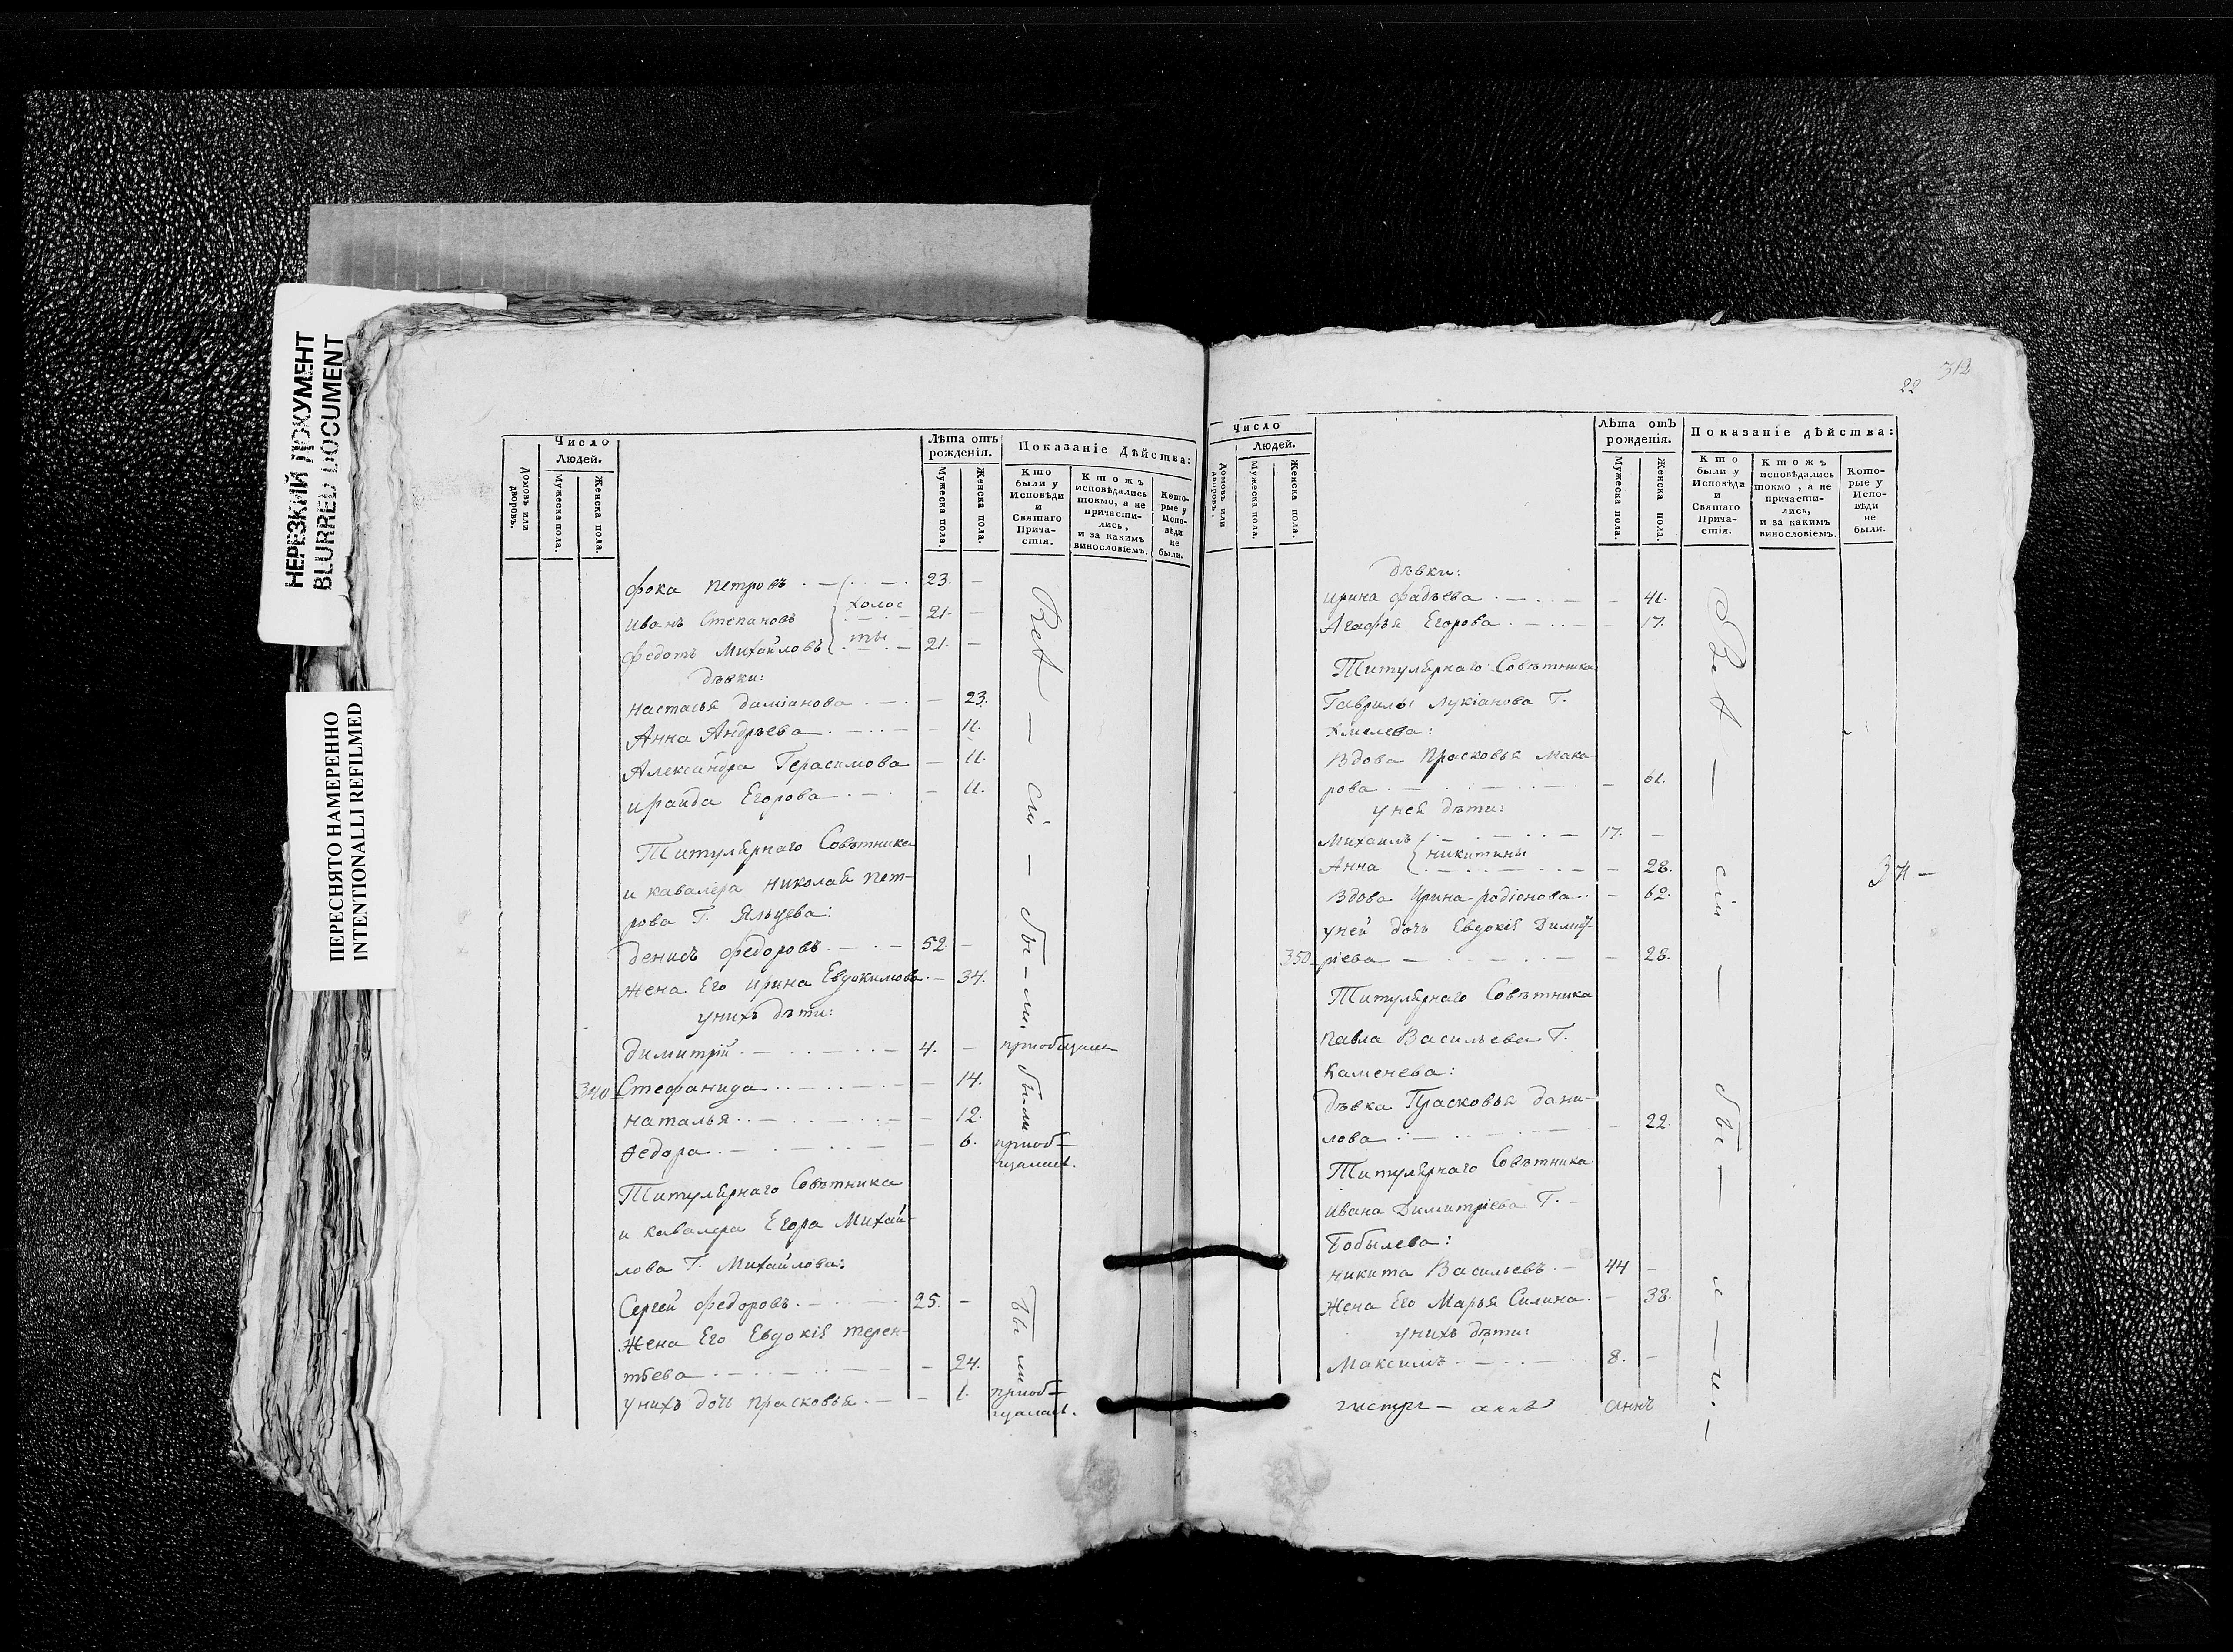 НЕРЕЗКИЙ ДОКУМЕНТ
BLURRED DOCUMENT
ПЕРЕСНЯТО НАМЕРЕННО
INTENTIONALLI REFILMED
Число
Людей.
Домовъ или дворовъ.
Мужеска пола.
Женска пола.
Лѣта отъ
рожденія.
Мужеска пола.
Женска пола.
Показаніе Дѣйства:
Кто
были у
Исповѣди
и
Святаго
Прича-
стія.
Ктожъ
исповѣдались
токмо, а не
причасти-
лись,
и за какимъ
винословіемъ.
Кото-
рые у
Испо-
вѣди
не
были.
фока петровъ 23. –
иванъ Степановъ холос 21. –
федотъ Михайловъ ты 21. –
дѣвки:
настасья даміанова – 23.
Анна Андрѣева – 11.
Александра Герасимова – 11.
ираида Егорова – 11.
Титулярнаго Совѣтника
и кавалера николая пет-
рова Г. Яльцева:
денисъ федоровъ 52. –
жена Его ирина Евдокимова – 34.
унихъ дѣти:
димитрій 4. –
340 Стефанида – 14.
наталья – 12.
Ѳедора – 6. приоб-
щалась.
Титулярнаго Совѣтника
и кавалера Егора Михай-
лова Г. Михайлова:
Сергѣй федоровъ 25. –
жена Его Евдокія терен-
тьева – 24.
унихъ дочь прасковья – 1. приоб-
щалась.
Всѣ – сіи – бы – ли.
были
бы ли
312
22
Число
Людей.
Домовъ или дворовъ.
Мужеска пола.
Женска пола.
Лѣта отъ
рожденія.
Мужеска пола.
Женска пола.
Показаніе дѣйства:
Кто
были у
Исповѣди
и
Святаго
Прича-
стія.
Ктожъ
исповѣдались
токмо, а не
причасти-
лись,
и за какимъ
винословіемъ.
Кото-
рые у
Испо-
вѣди
не
были.
дѣвки:
ирина фадѣева – 41.
Агафья Егорова – 17.
Титулярнаго Совѣтника
Гаврилы лукіанова Г.
Хмелева:
Вдова Прасковья мака
рова – 61.
уней дѣти:
михаилъ 17. –
никитины
Анна – 28.
Вдова Ирина родіонова – 62.
уней дочь Евдокія Димит-
350 ріева – 28.
Титулярнаго Совѣтника
павла Васильева Г.
Каменева:
дѣвка Прасковья дани-
лова – 22.
Титулярнаго Совѣтника
ивана Димитріева Г. –
Бобылева:
никита Васильевъ 44 –
жена Его Марья Силина – 38.
унихъ дѣти:
Максимъ 8. –
Всѣ – сіи – бы – л – и. –